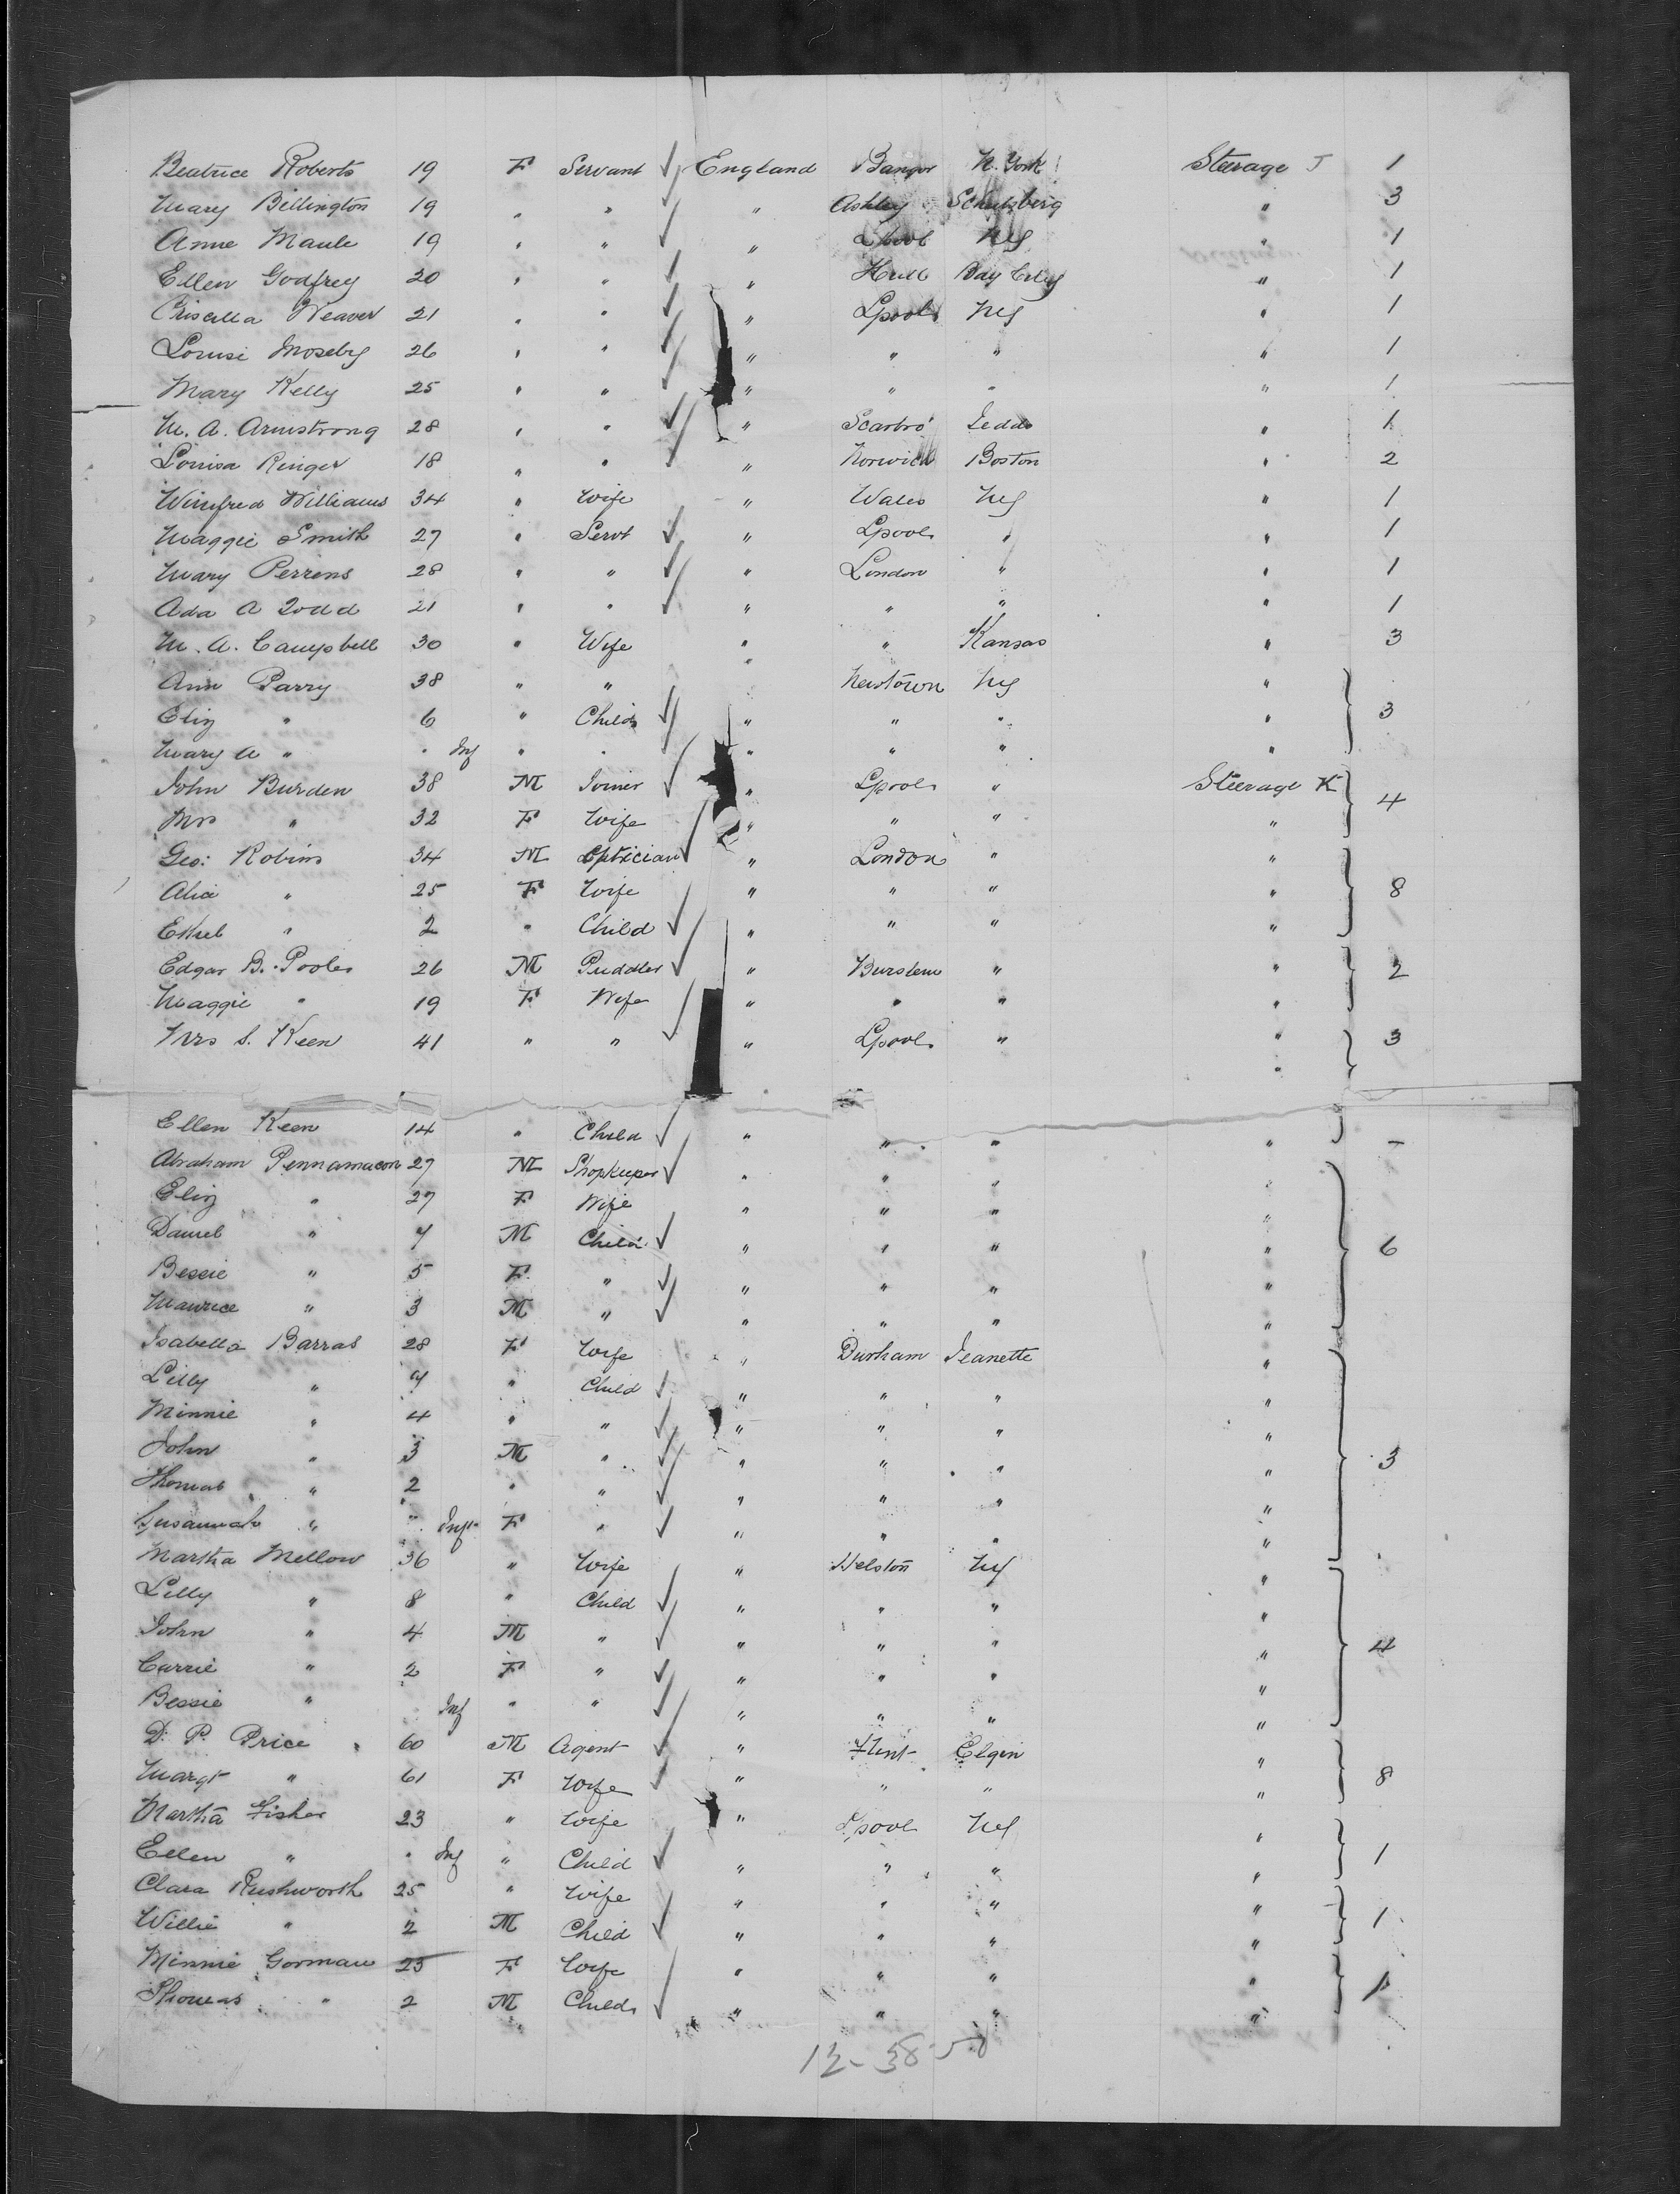 Beatrice Roberts 19 F Servant ✓ England Bangor N. York Steerage J 1
Mary Billington 19 " " ✓ " Ashley " 3
Anne Maule 19 " " ✓ " Lpool NY " 1
Ellen Godfrey 20 " " ✓ " Hull Bay City " 1
Priscilla Weaver 21 " " ✓ " Lpool NY " 1
Louisi Moseby 26 " " ✓ " " " " 1
Mary Kelly 25 " " ✓ " " " " 1
M. A. Armstrong 28 " " ✓ " Scarbro' Jeddo " 1
Louisa Ringer 18 " " ✓ " Norwich Boston " 2
Winifred Williams 34 " Wife " Wales NY " 1
Maggie Smith 27 " Servt ✓ " Lpool " " 1
Mary Perrens 28 " " ✓ " London " " 1
Ada A Todd 21 " " ✓ " " " " 1
M. A. Campbell 30 " Wife " " Kansas " 3
Ann Parry 38 " " " Newtown NY "
Eliz " 6 " Child ✓ " " " " 3
Mary A " " Inf " " ✓ " " " "
John Burden 38 M Joiner ✓ " Lpool " Steerage K 4
Mrs " 32 F Wife " " " "
Geo: Robins 34 M Optician ✓ " London " "
Alice " 25 F Wife " " " " 8
Ethel " 2 " Child ✓ " " " "
Edgar B. Poole 26 M Puddler ✓ " Burslem " " 2
Maggie " 19 F Wife " " " "
Mrs S. Keen 41 " " ✓ " Lpool " " 3
Ellen Keen 14 " Child ✓ " " " " -
Abraham Pennamacon 27 M Shopkeeper ✓ " " " "
Eliz " 27 F Wife " " " "
Daniel " 7 M Child ✓ " " " " 6
Bessie " 5 F " ✓ " " " "
Maurice " 3 M " ✓ " " " "
Isabella Barras 28 F Wife " Durham Jeanette "
Lilly " 7 " Child ✓ " " " "
Minnie " 4 " " ✓ " " " "
John " 3 M " ✓ " " " " 3
Thomas " 2 " " ✓ " " " "
Susannah " " Inf F " ✓ " " " "
Martha Mellow 36 " Wife " Helston NY "
Lilly " 8 " Child ✓ " " " "
John " 4 M " ✓ " " " " 4
Carrie " 2 F " ✓ " " " "
Bessie " Inf " " ✓ " " " "
D. P. Price 60 M Agent ✓ " Flint Elgin "
Margt " 61 F Wife ✓ " " " " 8
Martha Fisher 23 " Wife " Lpool NY "
Ellen " " Inf " Child ✓ " " " " 1
Clara Rushworth 25 " Wife " " " "
Willie " 2 M Child ✓ " " " " 1
Minnie Gorman 25 F Wife " " " "
Thomas " 2 M Child ✓ " " " " 1
12-38-50